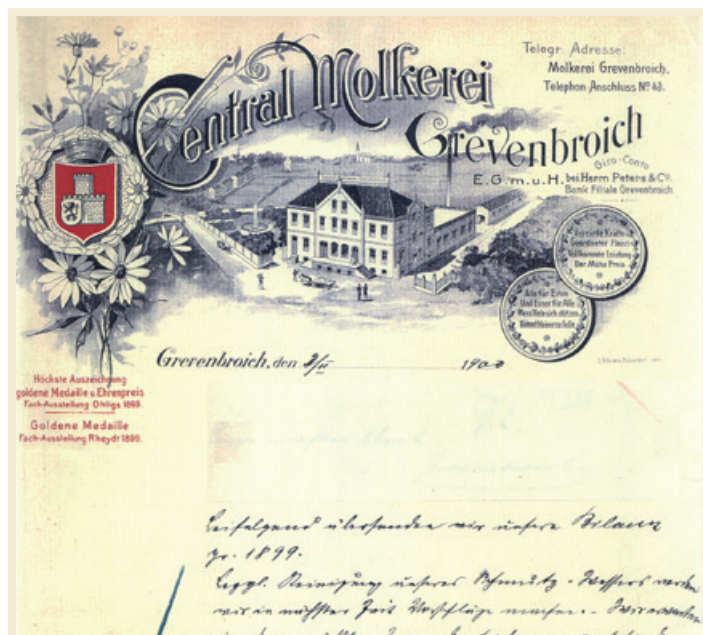 Central Molkerei
Grevenbroich
E.G.m.u.H.
Telegr. Adresse:
Molkerei Grevenbroich.
Telephon-Anschluss Nº 48.
Giro-Conto
bei Herrn Peters & Cº.
Bank Filiale Grevenbroich.
Vereinte Kraft
Geordneter Fleiss
Vollkommne Leistung
Der Mühe Preis
Alle für Einen
Und Einer für Alle
Grevenbroich, den 2/II 1900
Höchste Auszeichnung
goldene Medaille u. Ehrenpreis
Fach-Ausstellung Ohligs 1899.
Goldene Medaille
Fach-Ausstellung Rheydt 1899.
Beifolgend übersenden wir unsere Bilanz
pr. 1899.
Bezgl. Reinigung unseres Schmutz-Wassers werden
wir in nächster Zeit Vorschläge machen.